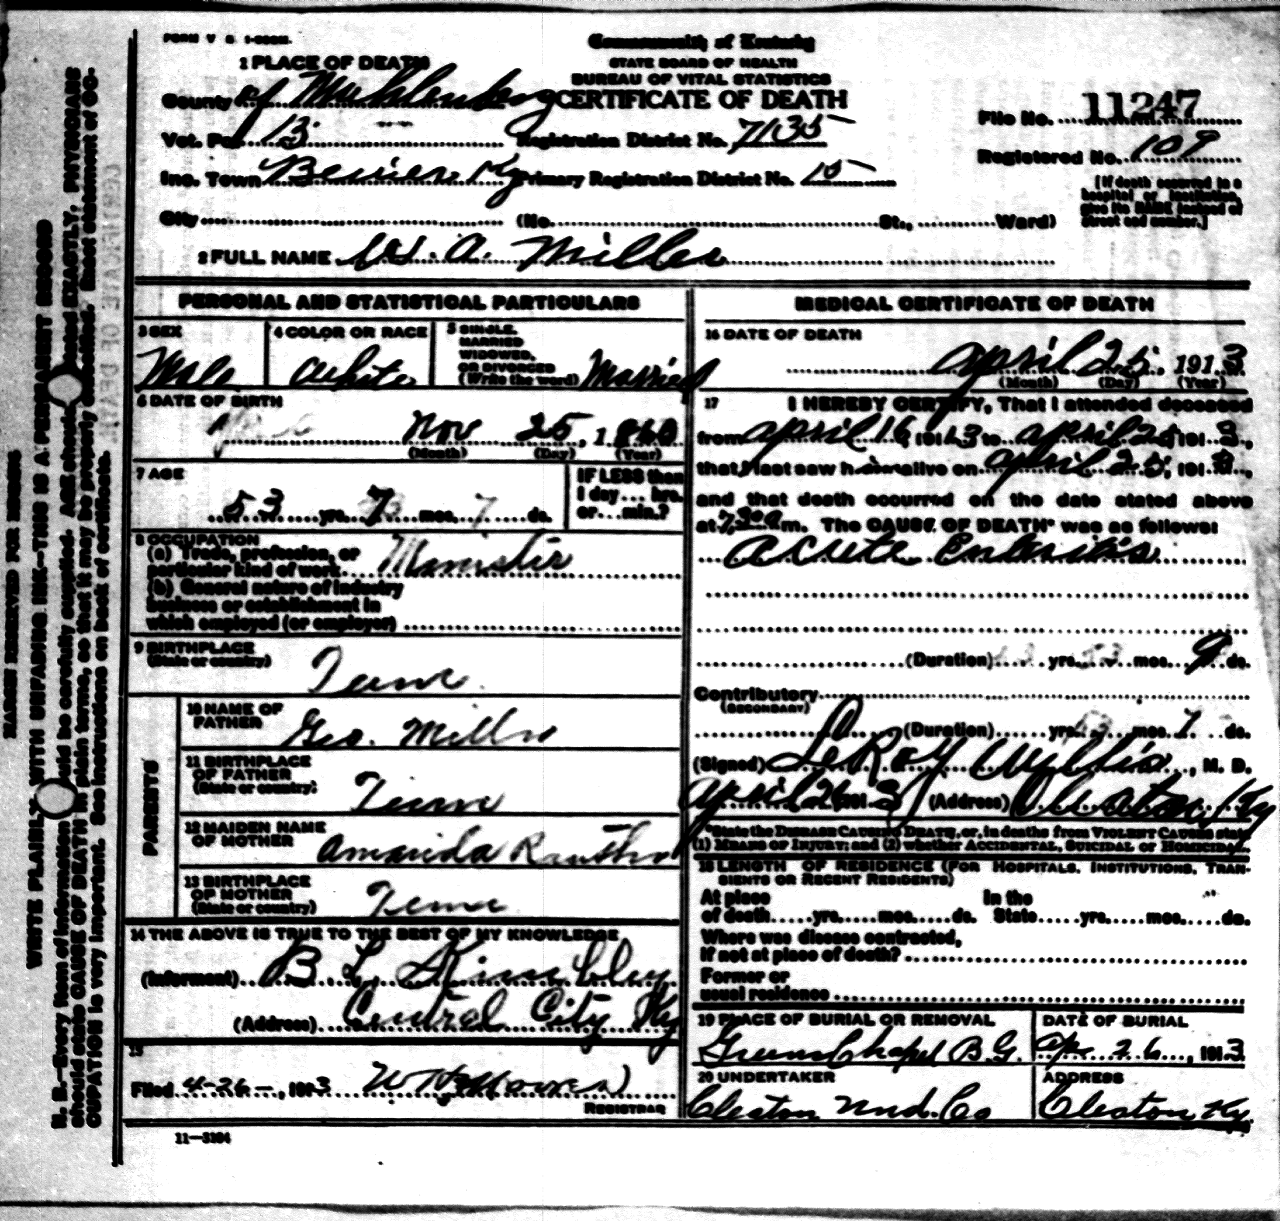 FORM V S
Commonwealth of Kentucky
STATE BOARD OF HEALTH
BUREAU OF VITAL STATISTICS
CERTIFICATE OF DEATH
1 PLACE OF DEATH
County of Muhlenberg
Vot. Pct. 13 Registration District No. 7135
Inc. Town Primary Registration District No. 15
City (No. St., Ward)
File No. 11247
Registered No. 109
[If death occurred in a
hospital or institution,
give its NAME instead of
street and number.]
2 FULL NAME W. A. Miller
PERSONAL AND STATISTICAL PARTICULARS
3 SEX
Male
4 COLOR OR RACE
White
5 SINGLE,
MARRIED
WIDOWED,
OR DIVORCED
(Write the word) Married
6 DATE OF BIRTH
Nov 25, 1860
(Month) (Day) (Year)
7 AGE
53 yrs. 7 mos. 7 ds.
IF LESS than
1 day ... hrs.
or ... min.?
8 OCCUPATION
(a) Trade, profession, or
particular kind of work Minister
(b) General nature of industry
business or establishment in
which employed (or employer)
9 BIRTHPLACE
(State or country)
Tenn
PARENTS
10 NAME OF
FATHER
Geo. Miller
11 BIRTHPLACE
OF FATHER
(State or country)
Tenn
12 MAIDEN NAME
OF MOTHER
Amanda
13 BIRTHPLACE
OF MOTHER
(State or country)
Tenn
14 THE ABOVE IS TRUE TO THE BEST OF MY KNOWLEDGE
(Informant) B L Kimbley
(Address) Central City Ky
15
Filed 4-26-, 1913
REGISTRAR
11—3184
MEDICAL CERTIFICATE OF DEATH
16 DATE OF DEATH
April 25, 1913
(Month) (Day) (Year)
17 I HEREBY CERTIFY, That I attended deceased
from April 16, 1913 to April 25, 1913,
that I last saw him alive on April 25, 1913,
and that death occurred on the date stated above
at m. The CAUSE OF DEATH* was as follows:
Acute Enteritis
(Duration) yrs. mos. 9 ds.
Contributory
(SECONDARY)
(Duration) yrs. mos. 7 ds.
(Signed) LeRoy Wyllis, M. D.
April 26 1913 (Address) Cleaton, Ky
*State the DISEASE CAUSING DEATH, or, in deaths from VIOLENT CAUSES state
(1) MEANS OF INJURY; and (2) whether ACCIDENTAL, SUICIDAL OR HOMICIDAL.
18 LENGTH OF RESIDENCE (FOR HOSPITALS, INSTITUTIONS, TRAN-
SIENTS OR RECENT RESIDENTS)
At place In the
of death yrs. mos. ds. State yrs. mos. ds.
Where was disease contracted,
If not at place of death?
Former or
usual residence
19 PLACE OF BURIAL OR REMOVAL
Greens Chapel B.G.
DATE OF BURIAL
Ap 26, 1913
20 UNDERTAKER
Cleaton Und. Co
ADDRESS
Cleaton Ky
MARGIN RESERVED FOR BINDING
WRITE PLAINLY, WITH UNFADING INK—THIS IS A PERMANENT RECORD
N. B.—Every item of information should be carefully supplied. AGE should be stated EXACTLY. PHYSICIANS
should state CAUSE OF DEATH in plain terms, so that it may be properly classified. Exact statement of OC-
CUPATION is very important. See instructions on back of certificate.